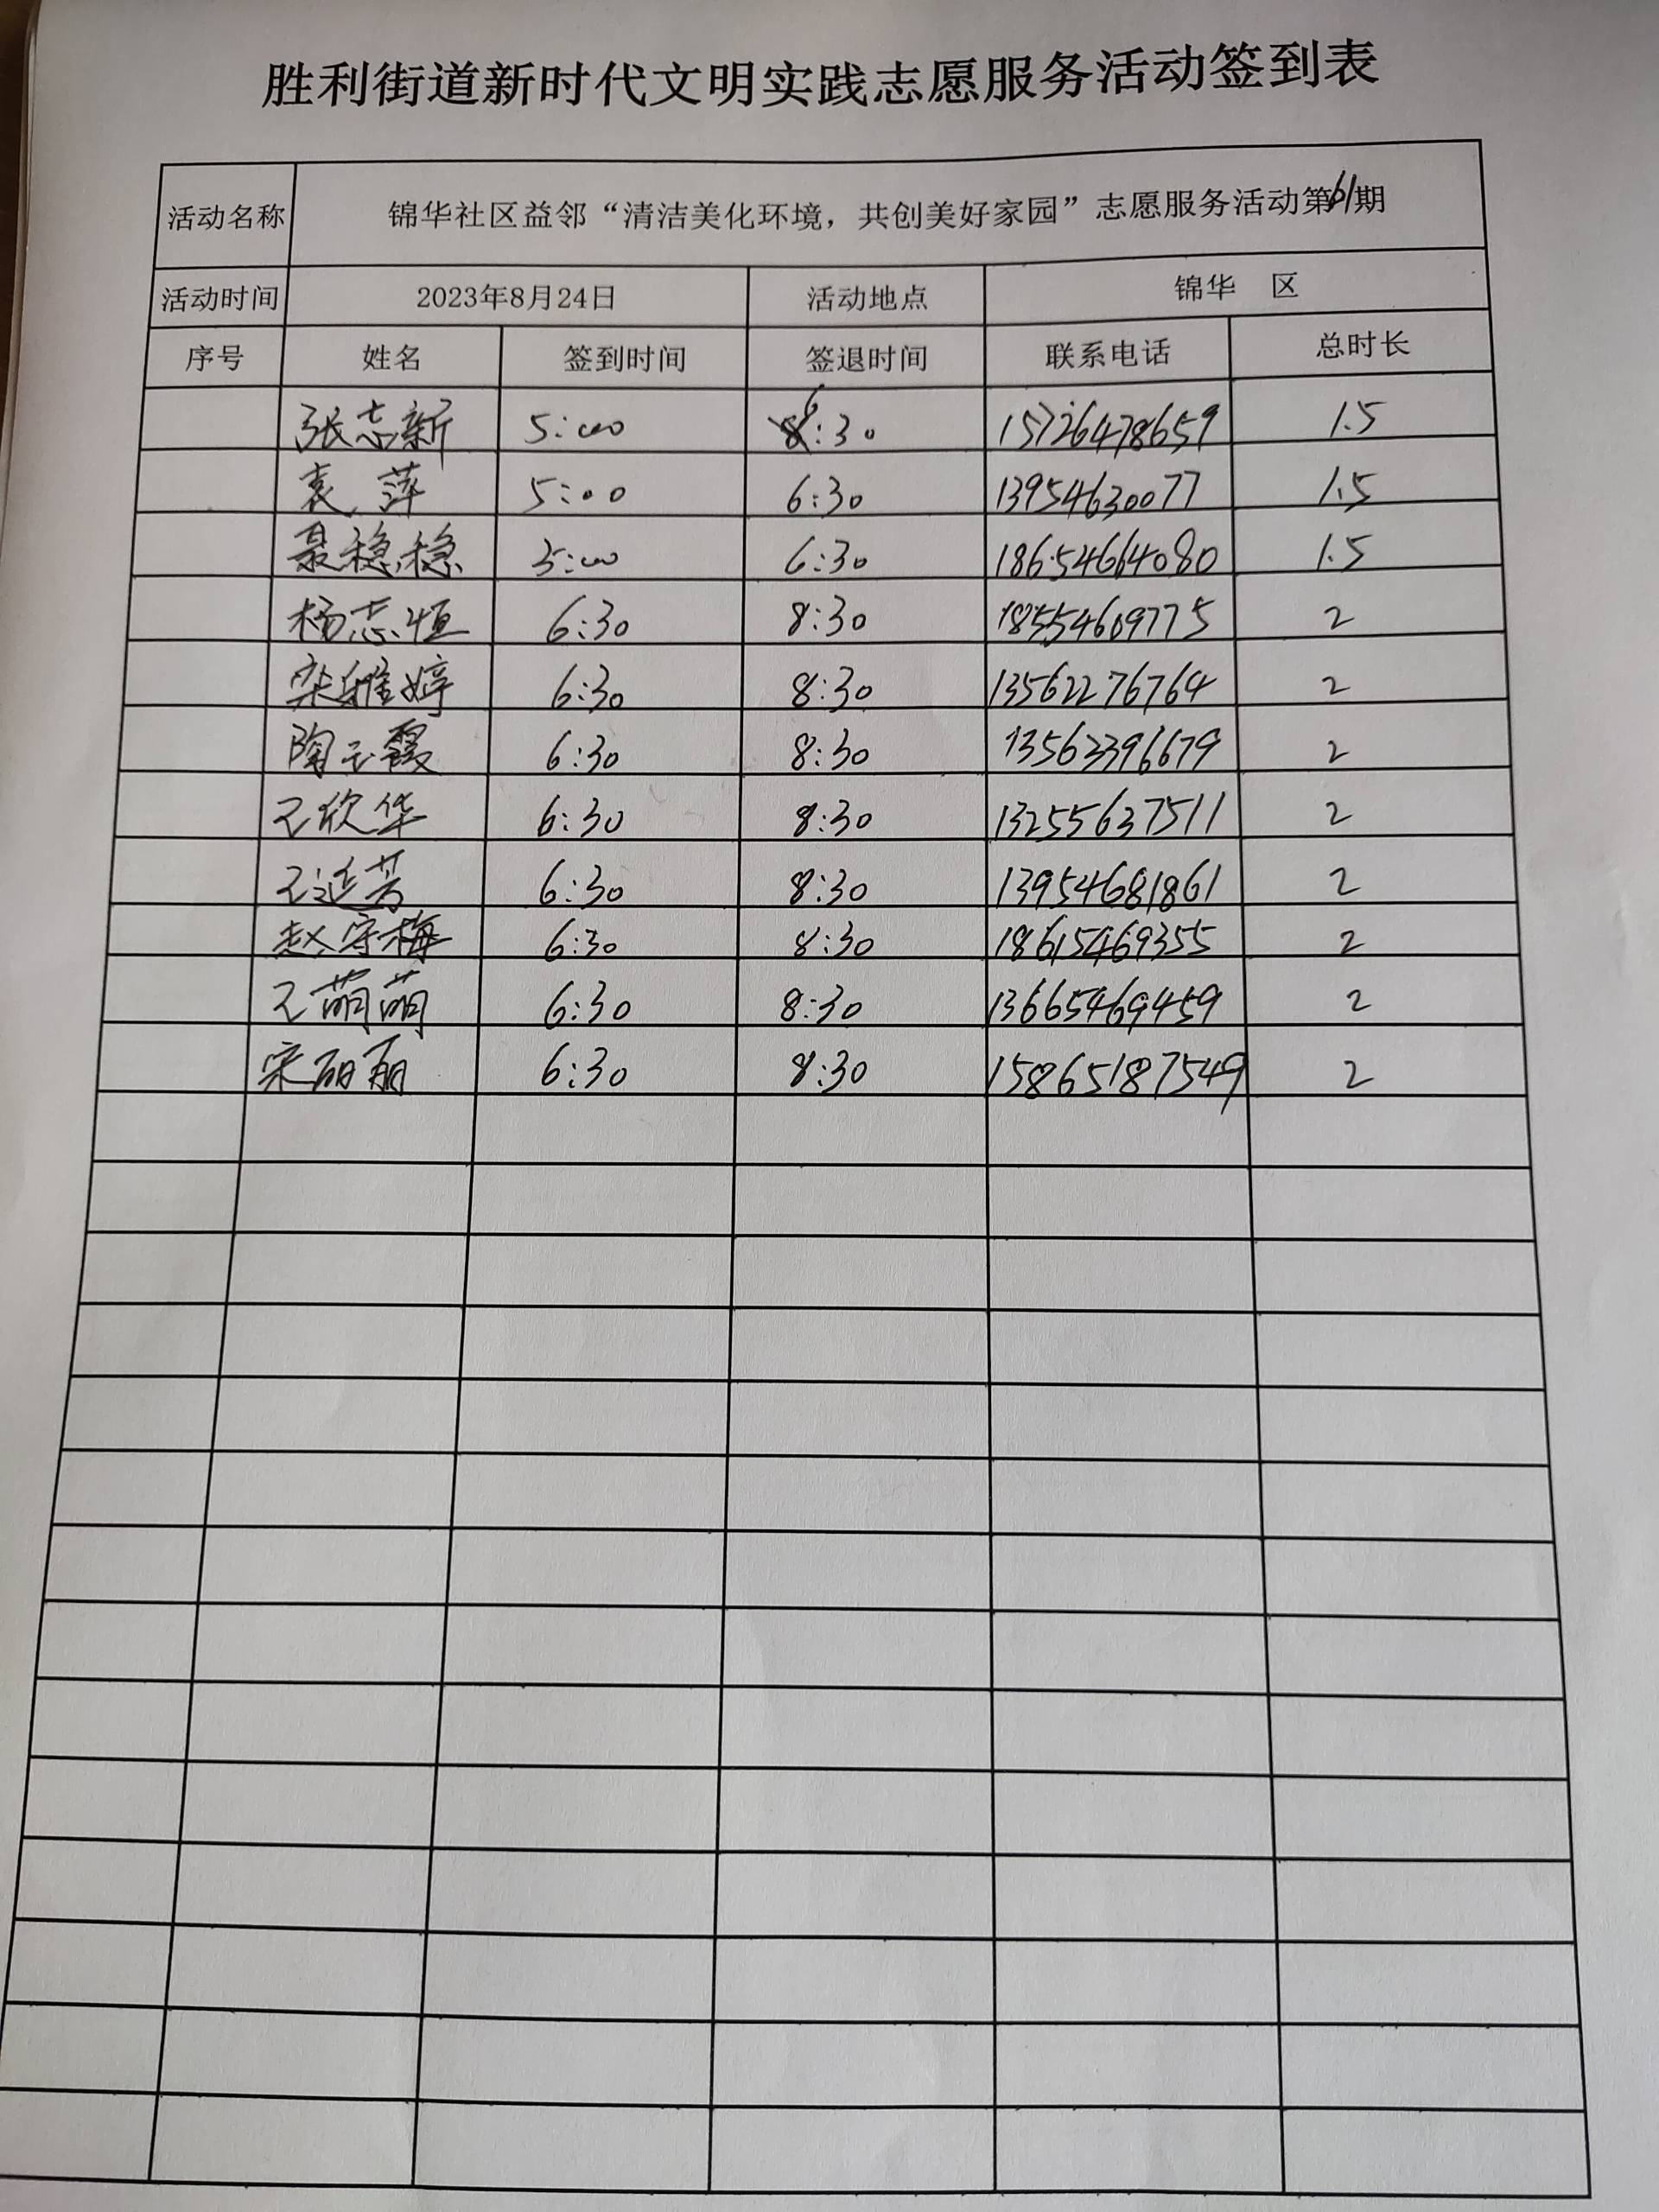 胜利街道新时代文明实践志愿服务活动签到表
活动名称 锦华社区益邻“清洁美化环境，共创美好家园”志愿服务活动第61期
活动时间 2023年8月24日 活动地点 锦华 区
序号 姓名 签到时间 签退时间 联系电话 总时长
张志新 5:00 6:30 15726478659 1.5
袁萍 5:00 6:30 13954630077 1.5
聂稳稳 5:00 6:30 18654664080 1.5
杨志恒 6:30 8:30 18554609775 2
雅婷 6:30 8:30 13562276764 2
陶玉霞 6:30 8:30 13562396679 2
王欣华 6:30 8:30 13255637511 2
王延芳 6:30 8:30 13954681861 2
赵守梅 6:30 8:30 18615469355 2
王萌萌 6:30 8:30 13665469459 2
宋丽丽 6:30 8:30 15865187549 2